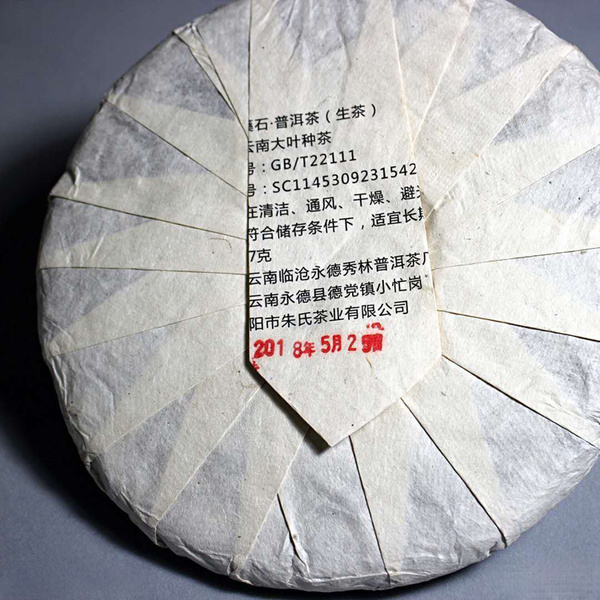 石·普洱茶（生茶）
云南大叶种茶
号：GB/T22111
号：SC1145309231542
在清洁、通风、干燥、避光
符合储存条件下，适宜长期
7克
云南临沧永德秀林普洱茶厂
云南永德县德党镇小忙岗
阳市朱氏茶业有限公司
2018年5月2